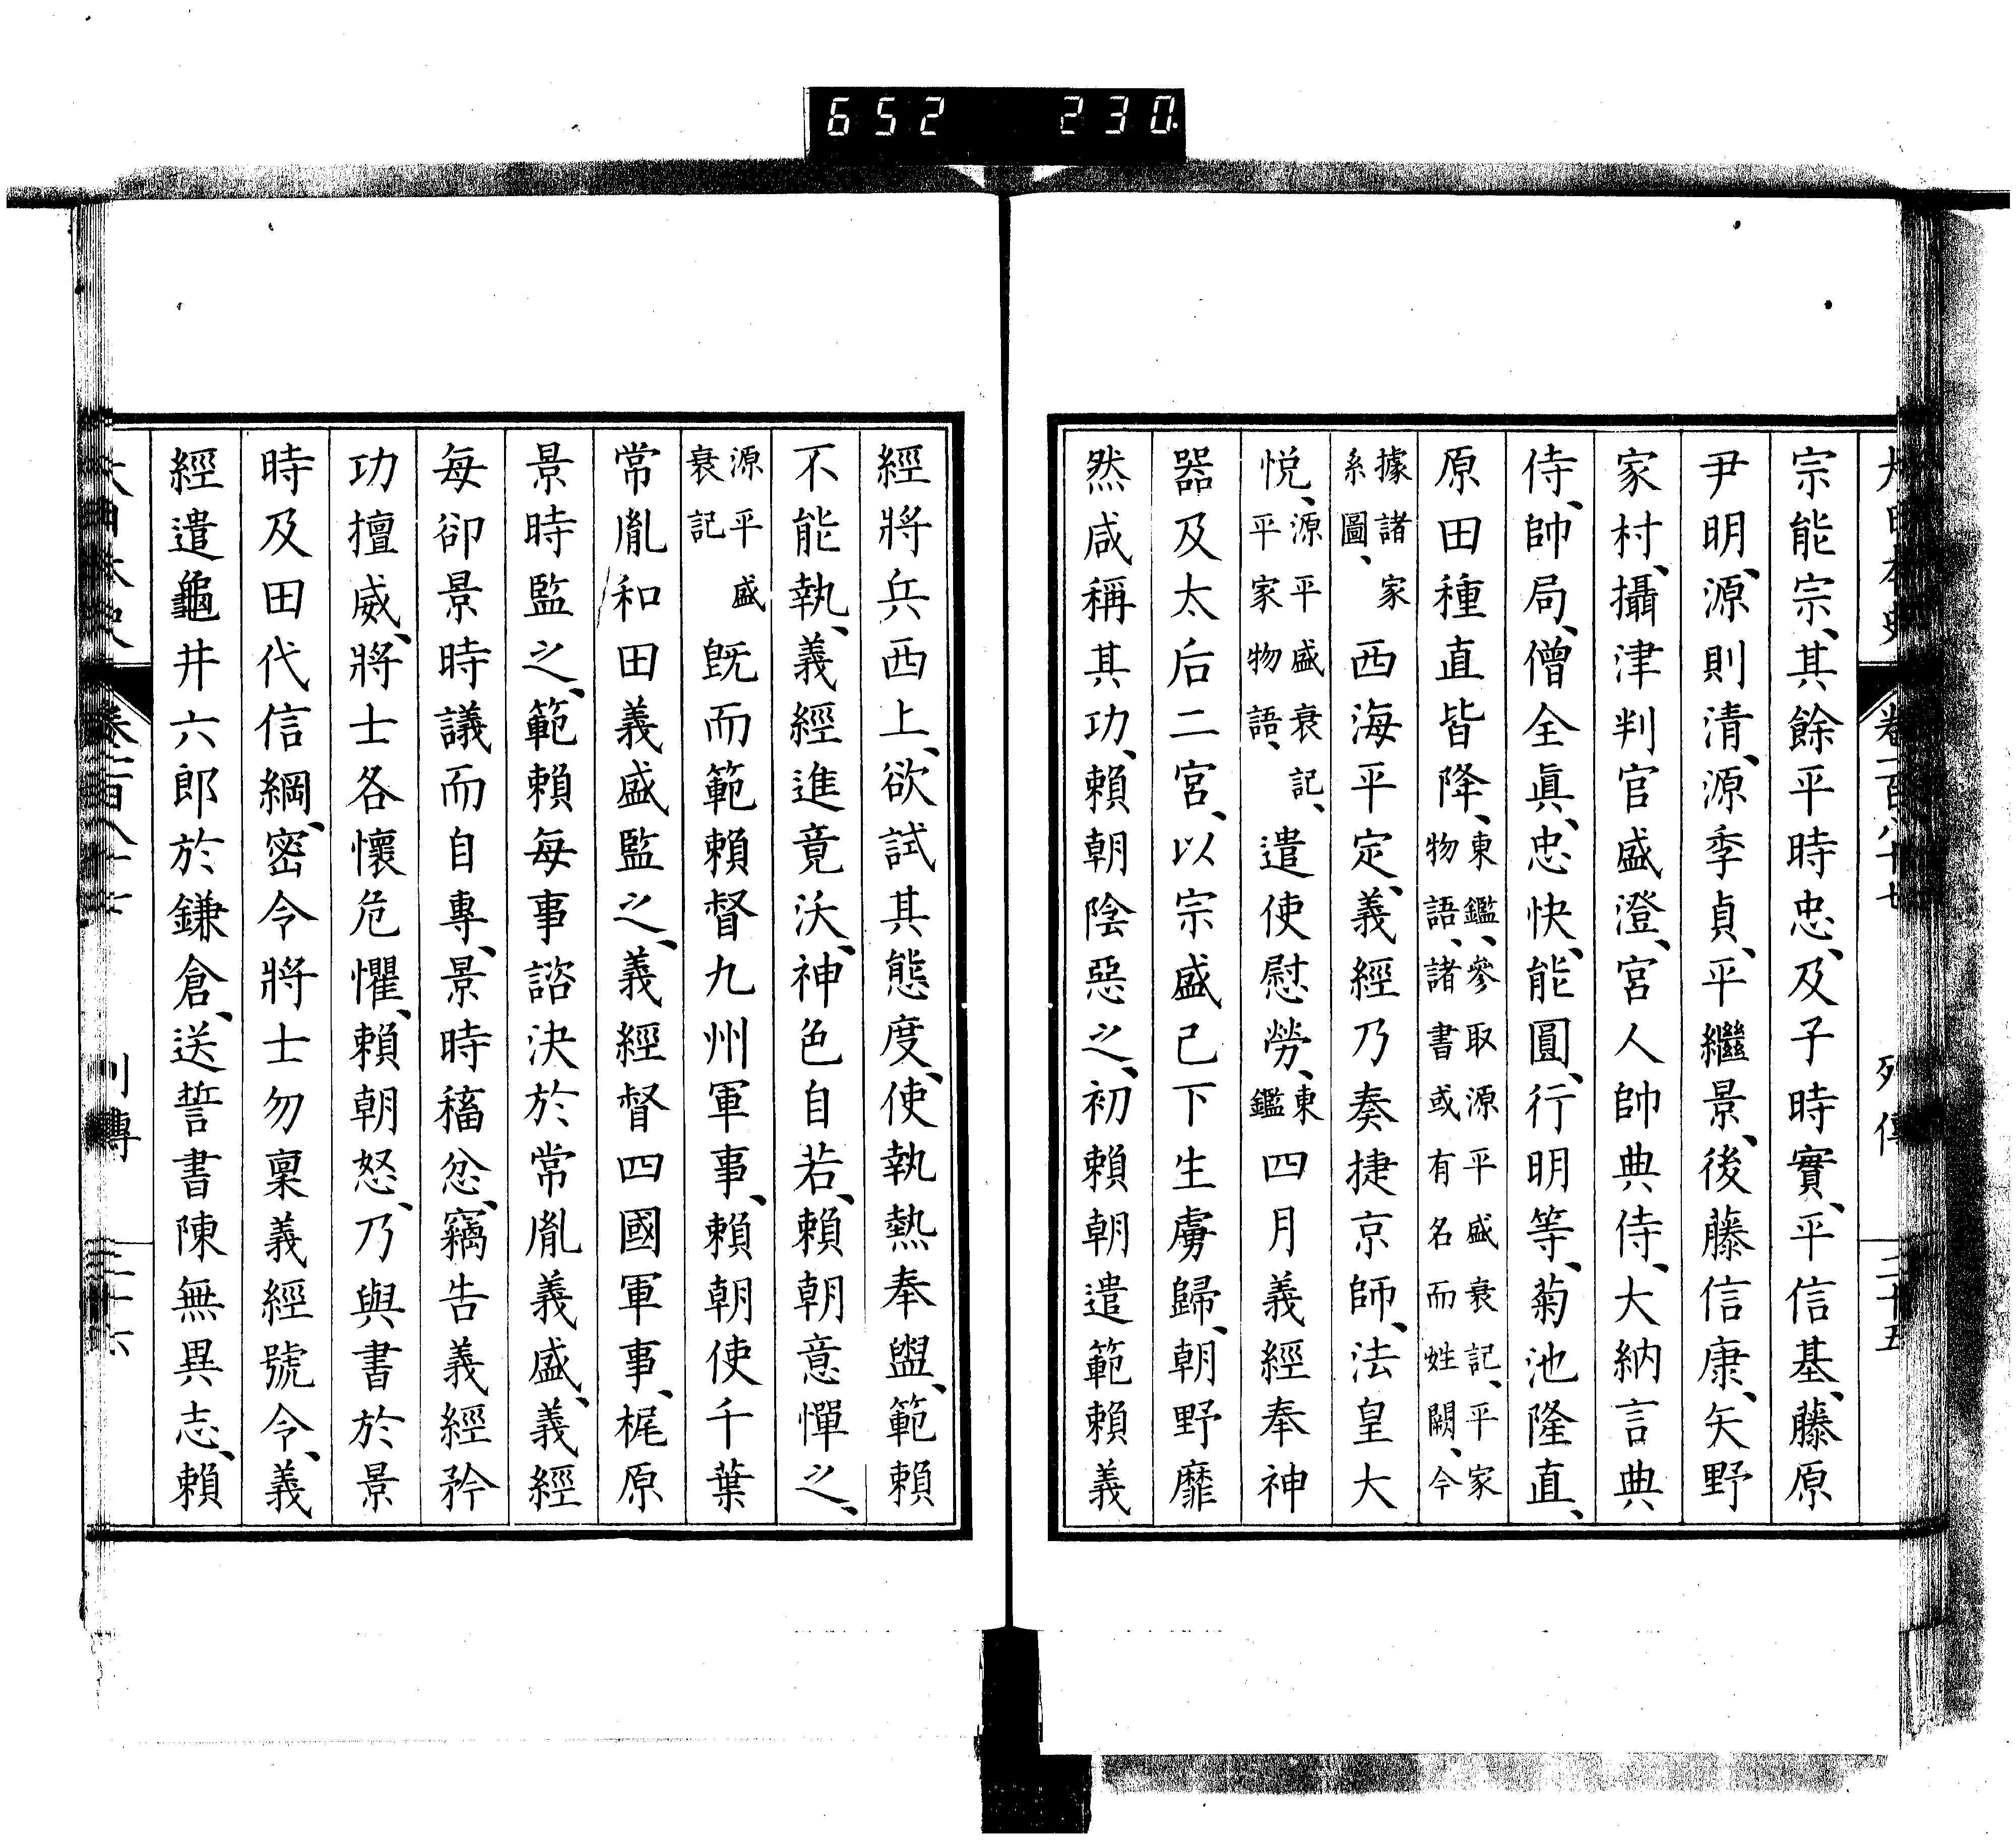 652 230
大日本史 卷一百八十七 列傳 二十五
宗能宗、其餘平時忠、及子時實、平信基、藤原
尹明、源則清、源季貞、平繼景、後藤信康、矢野
家村、攝津判官盛澄、宮人帥典侍、大納言典
侍、帥局、僧全眞、忠快、能圓、行明等、菊池隆直、
原田種直皆降、東鑑、參取源平盛衰記、平家
物語、諸書或有名而姓闕、今
據諸家
系圖、西海平定、義經乃奏捷京師、法皇大
悅、源平盛衰記、
平家物語、遣使慰勞、東
鑑四月義經奉神
器及太后二宮、以宗盛已下生虜歸、朝野靡
然咸稱其功、賴朝陰惡之、初賴朝遣範賴義
經將兵西上、欲試其態度、使執熱奉盥、範賴
不能執、義經進竟沃、神色自若、賴朝意憚之、
源平盛
衰記既而範賴督九州軍事、賴朝使千葉
常胤和田義盛監之、義經督四國軍事、梶原
景時監之、範賴每事諮決於常胤義盛、義經
每卻景時議而自專、景時稸忿、竊告義經矜
功擅威、將士各懷危懼、賴朝怒、乃與書於景
時及田代信綱、密令將士勿稟義經號令、義
經遣龜井六郎於鎌倉、送誓書陳無異志、賴
大日本史 卷一百八十七 列傳 二十六